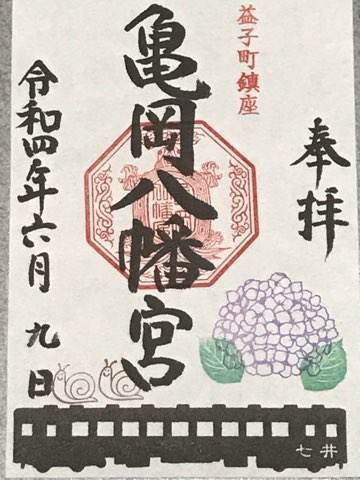 益子町鎮座
奉拝
亀岡八幡宮
令和四年六月九日
七井